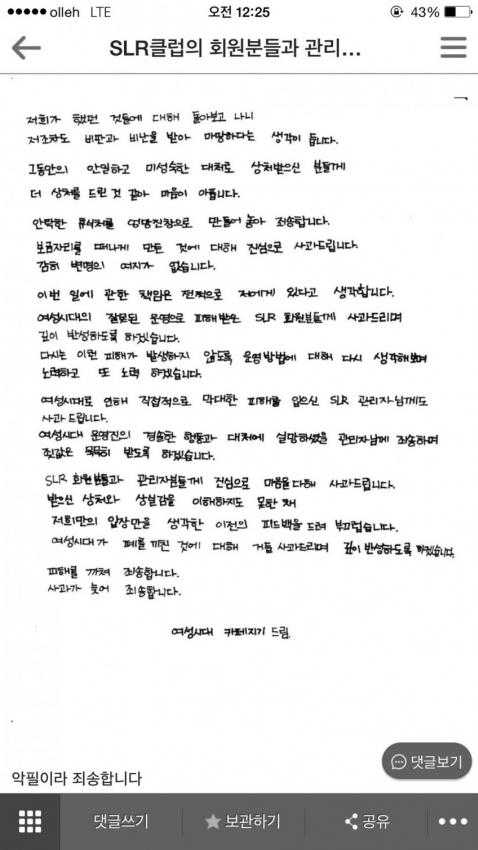 olleh LTE 오전 12:25 43%
SLR클럽의 회원분들과 관리...
저희가 했던 것들에 대해 돌아보고 나니
저조차도 비판과 비난을 받아 마땅하다는 생각이 듭니다.
그동안의 안일하고 미성숙한 대처로 상처받으신 분들께
더 상처를 드린 것 같아 마음이 아픕니다.
안락한 휴식처를 엉망진창으로 만들어 놓아 죄송합니다.
보금자리를 떠나게 만든 것에 대해 진심으로 사과드립니다.
감히 변명의 여지가 없습니다.
이번 일에 관한 책임은 전적으로 저에게 있다고 생각합니다.
여성시대의 잘못된 운영으로 피해받은 SLR 회원분들께 사과드리며
깊이 반성하도록 하겠습니다.
다시는 이런 피해가 발생하지 않도록 운영방법에 대해 다시 생각해보며
노력하고 또 노력 하겠습니다.
여성시대로 인해 직접적으로 막대한 피해를 입으신 SLR 관리자님께도
사과드립니다.
여성시대 운영진의 경솔한 행동과 대처에 실망하셨을 관리자님께 죄송하며
죗값은 톡톡히 받도록 하겠습니다.
SLR 회원분들과 관리자분들께 진심으로 마음을 다해 사과드립니다.
받으신 상처와 상실감을 이해하지도 못한 채
저희만의 입장만을 생각한 이전의 피드백을 드려 부끄럽습니다.
여성시대가 폐를 끼친 것에 대해 거듭 사과드리며 깊이 반성하도록 하겠습니다.
피해를 끼쳐 죄송합니다.
사과가 늦어 죄송합니다.
여성시대 카페지기 드림
댓글보기
악필이라 죄송합니다
댓글쓰기 보관하기 공유